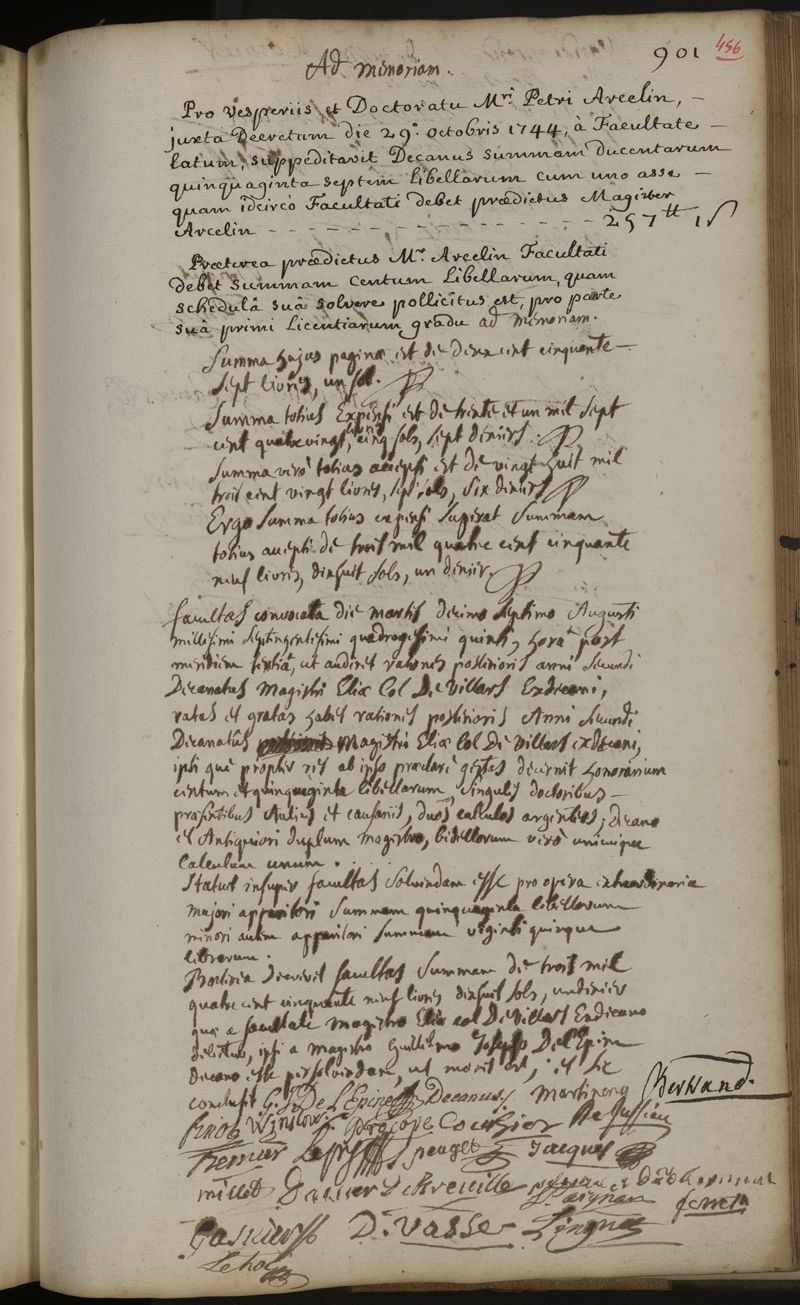 901 456
Ad memoriam.
Pro Vesperiis et Doctoratu Mri Petri Arcelin, -
juxta Decretum die 29.ª Octobris 1744, à Facultate -
latum, suppeditavit Decanus summam ducentarum
quinquaginta septem libellarum cum uno asse -
quam idcircò Facultati debet prædictus Magister
Arcelin - - - - - - - - - - - - - 257tt 1s
Præterea prædictus Mr. Arcelin Facultati
debet summam centum libellarum, quam
schedulâ suâ solvere pollicitus est, pro parte
suâ primi Licentiarum gradu ad memoriam.
Summa hujus paginæ est de deux cent cinquante -
sept livres, un sol.
Summa totius Expensi est de trente et un mil sept
cent quatrevingt livres, cinq sols, sept deniers.
Summa verò totius accepti est de vingt huit mil
trois cent vingt livres, sept sols, six deniers
Ergo Summa totius expensi superat Summam
totius accepti de trois mil quatre cent cinquante
neuf livres, dixhuit sols, un denier.
Facultas convocata die martis decimo septimo Augusti
millesimi septingentesimi quadragesimi quinti, horâ post
meridiem tertiâ, ut audiret rationes posterioris anni secundi
Decanatus Magistri Eliæ Col De Villars Exdecani,
ratas et gratas habet rationes posterioris Anni secundi
Decanatûs Magistri Eliæ Col De Villars exdecani,
ipsi que propter res ab ipso præclarè gestas decernit honorarium
centum et quinquaginta libellarum, singulis doctoribus -
præsentibus Aulicis et causariis, duos calculos argenteos, Decano
et Antiquiori duplum Magistro, bidellorum verò unicuique
Calculum unum.
Statuit insuper facultas solvendam esse pro opera extraordinaria
majori apparitori summam quinquaginta libellarum
minori autem apparitori summam viginti quinque
librarum.
Postrema decrevit facultas Summam de trois mil
quatre cent cinquante neuf livres dixhuit sols, un denier
quæ a facultate Magistro Eliæ Col De Villars Exdecano
debetur, ipsi a Magistro Guillelmo Josepho Del'Epine
decano esse persolvendam, ut moris est, et sic
conclusit G. J. De L'Epine Decanus Martinenq Bertrand.
Winslow Procope Courzier De Jussieu
Bernier peaget Jacques
millet
D. Vasse